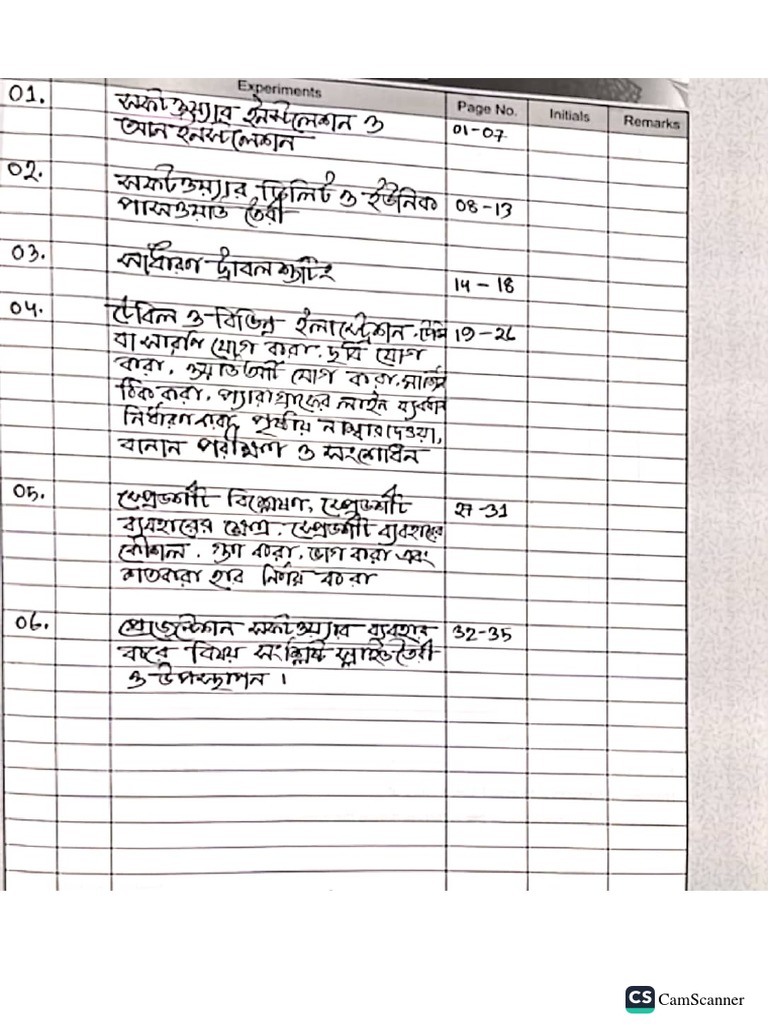 Experiments Page No. Initials Remarks
01. সফটওয়্যার ইনস্টলেশন ও 01-07
আনইনস্টলেশন
02. সফটওয়্যার ডিলিট ও ইউনিক 08-13
পাসওয়ার্ড তৈরী
03. সাধারণ ট্রাবল শুটিং 14-18
04. টেবিল ও বিভিন্ন ইলাস্ট্রেশন 19-26
বা সারণি যোগ করা, ছবি যোগ
করা, ওয়ার্ডআর্ট যোগ করা, মার্জিন
ঠিক করা, প্যারাগ্রাফের লাইন ব্যবধান
নির্ধারণ করা, পৃষ্ঠায় নাম্বার দেওয়া,
বানান পরীক্ষণ ও সংশোধন
05. স্প্রেডশীট বিশ্লেষণ, স্প্রেডশীট 27-31
ব্যবহারের ক্ষেত্র, স্প্রেডশীট ব্যবহারের
কৌশল, গুণ করা, ভাগ করা এবং
শতকরা হার নির্ণয় করা
06. প্রেজেন্টেশন সফটওয়্যার ব্যবহার 32-35
করে বিষয় সংশ্লিষ্ট স্লাইড তৈরী
ও উপস্থাপন।
CS CamScanner